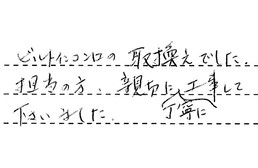 ビルトインコンロの取換えでした.
担当の方、親切に工事して
下さいました.　丁寧に